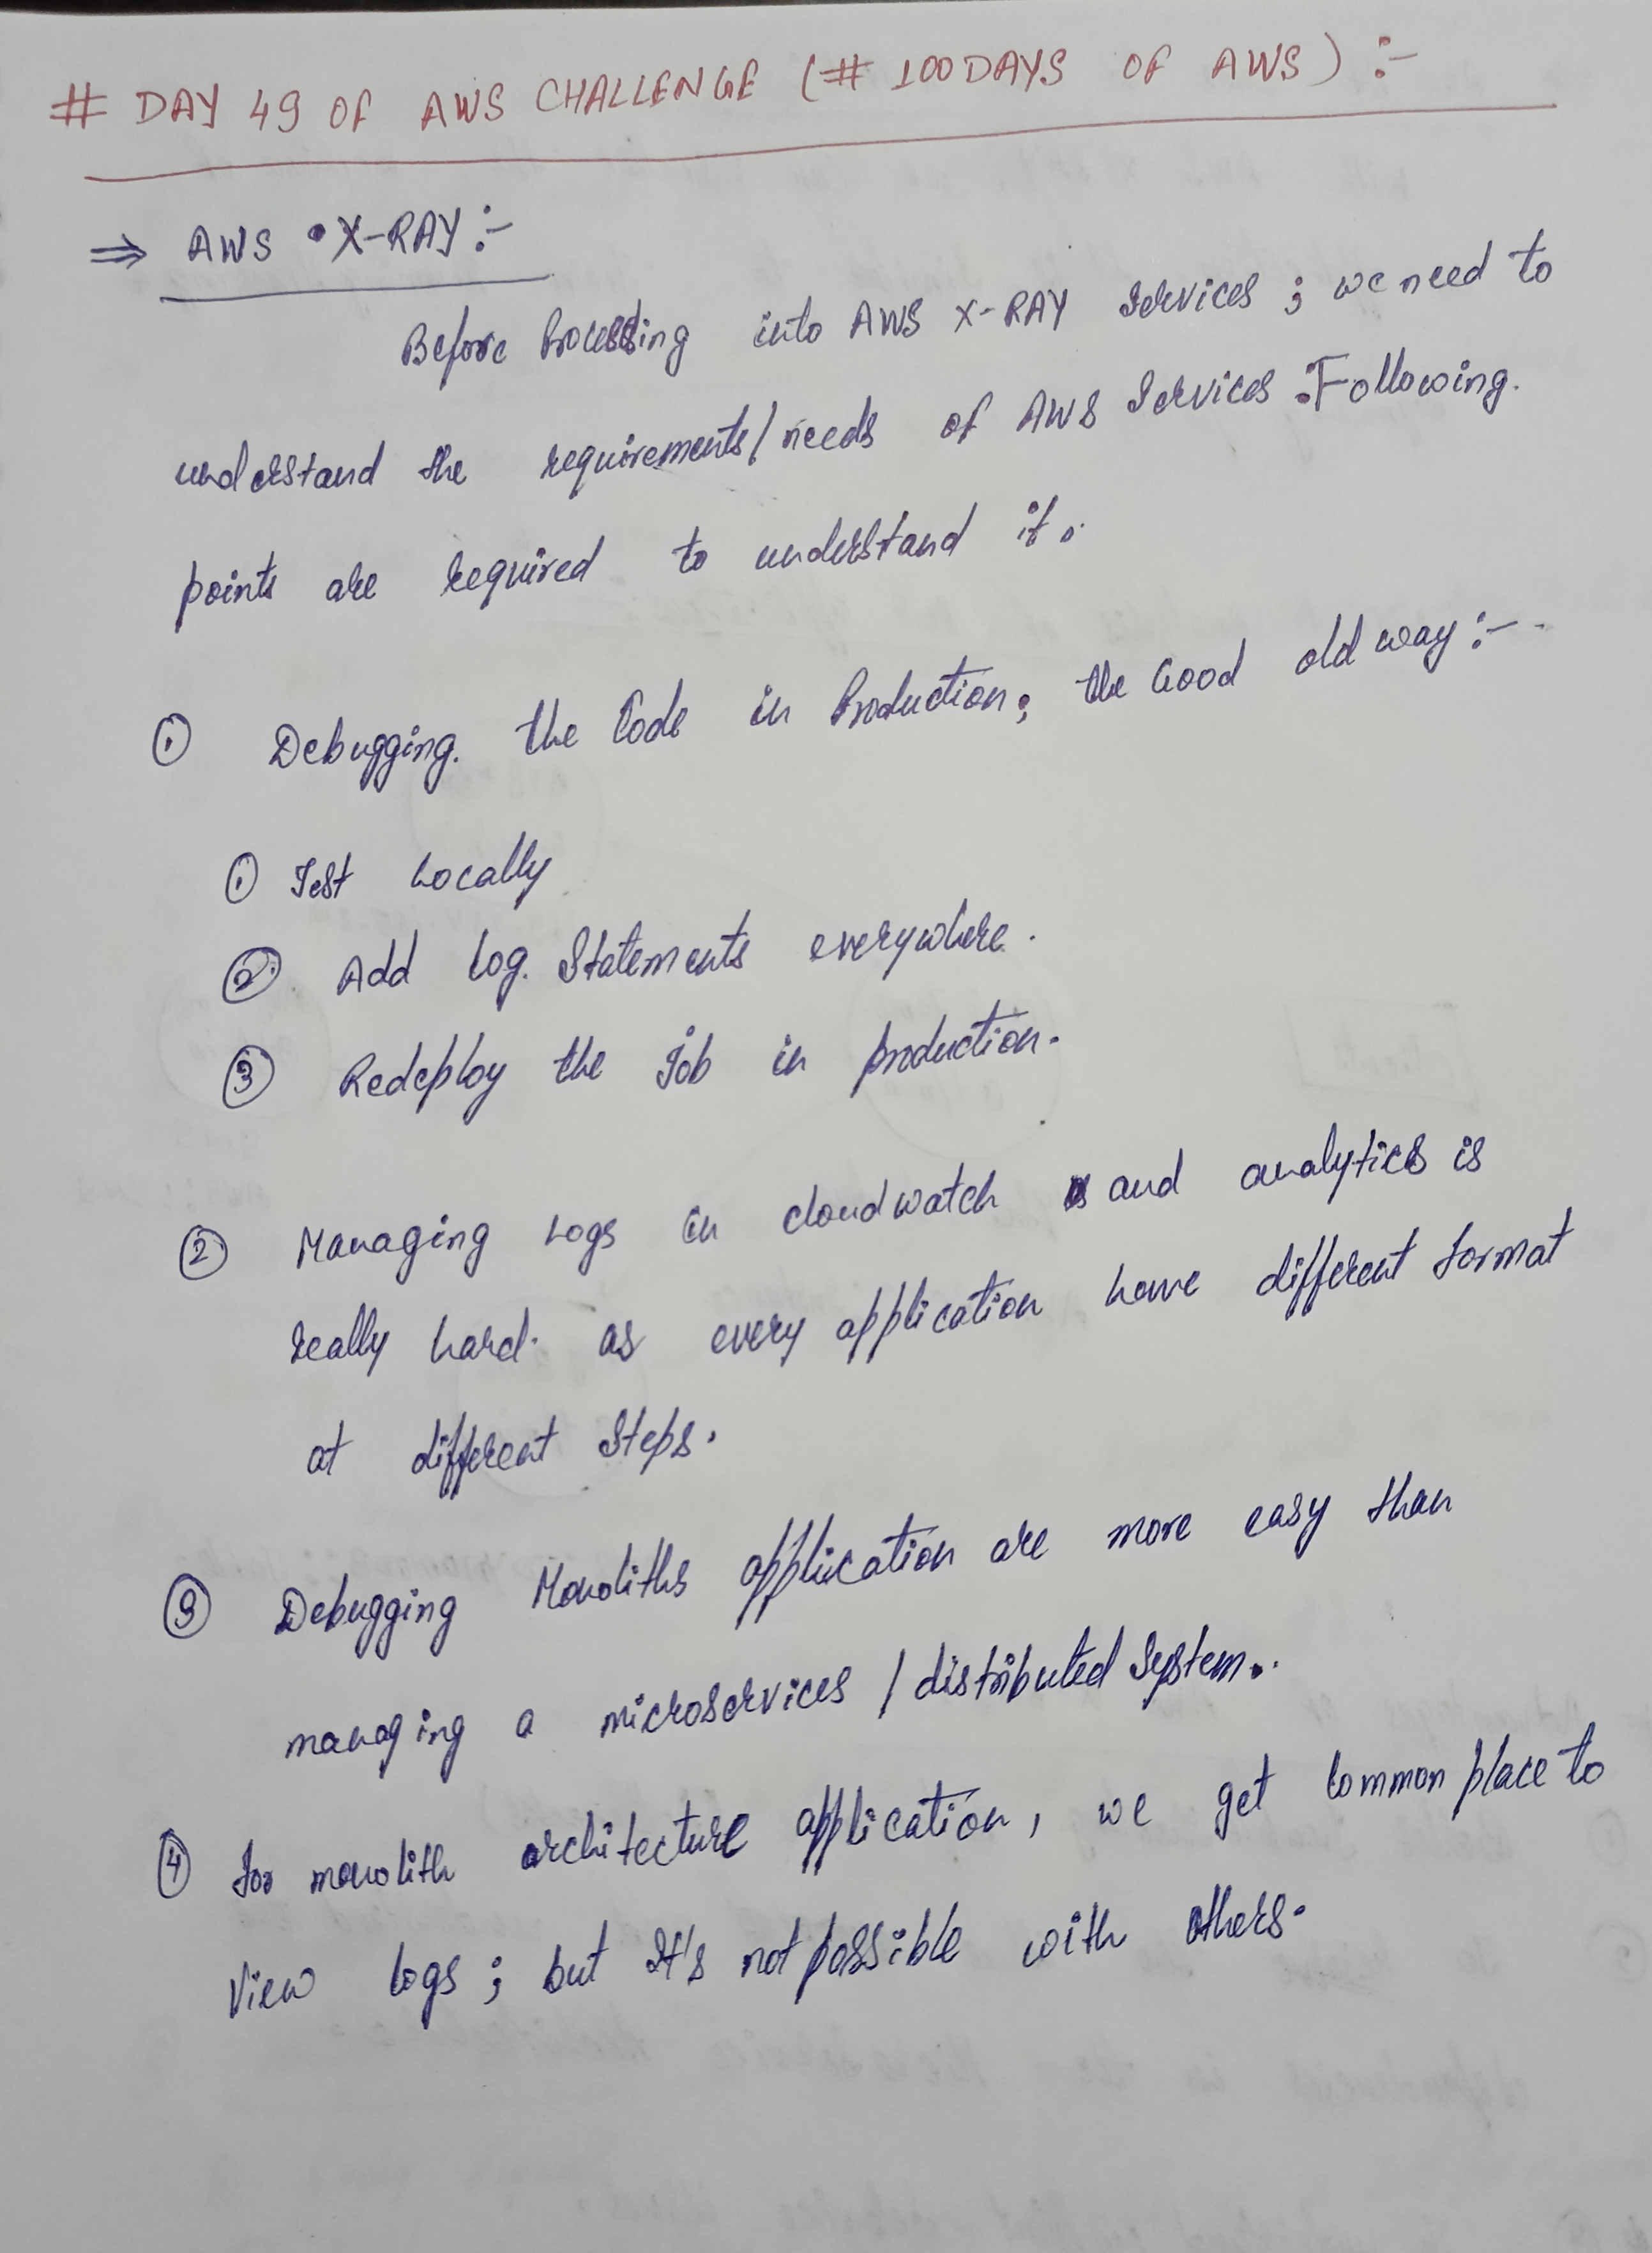 # DAY 49 OF AWS CHALLENGE (# 100DAYS OF AWS) :-
⇒ AWS • X-RAY :-
Before Processing into AWS X-RAY Services ; we need to
understand the requirements/needs of AWS Services .Following.
points are required to understand it.
① Debugging. the Code in Production, the Good old way :-
① Test Locally
② Add Log. Statements everywhere.
③ Redeploy the Job in production.
② Managing Logs in cloudwatch and analytics is
really hard. as every application have different format
at different Steps.
③ Debugging Monoliths application are more easy than
managing a microservices / distributed System..
④ For monolith architecture application, we get Common place to
View logs ; but It's not possible with others.